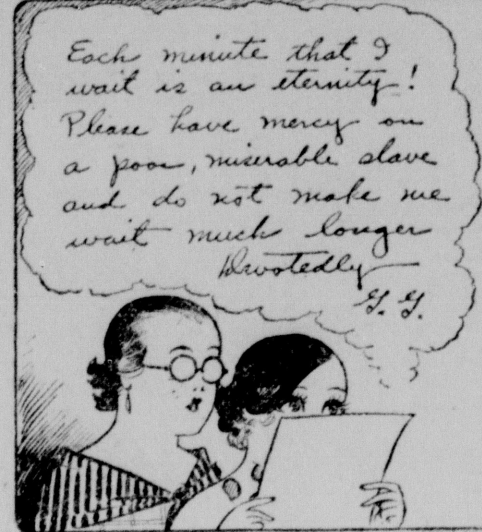 Each minute that I
wait is an eternity!
Please have mercy on
a poor, miserable slave
and do not make me
wait much longer
Devotedly
G. G.